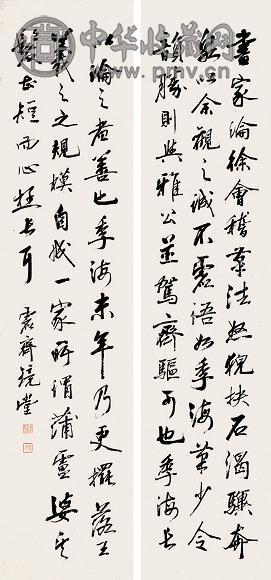 中华收藏网
www.pmv.cn
書家論徐會稽筆法怒猊抉石渴驥奔
泉以余觀之誠不虛語如季海筆少令
韻勝則與雅公並駕齊驅可也季海長
論之者善也季海末年乃更擺落王
羲之之規模自成一家所謂蒲
長短而心長耳